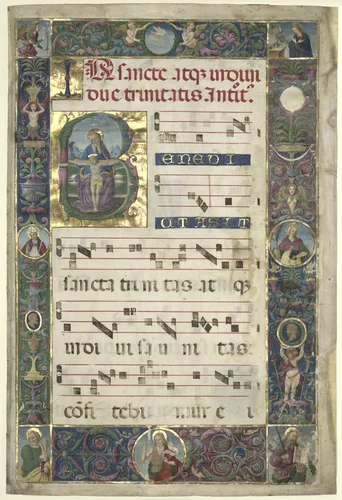 IN sancte atqꝫ indiui
due trinitatis Intŏ͞.
B
ENEDI
OTASIT
sancta trinitas atqꝫ
indiuisa unitas:
cōfitebimur ei